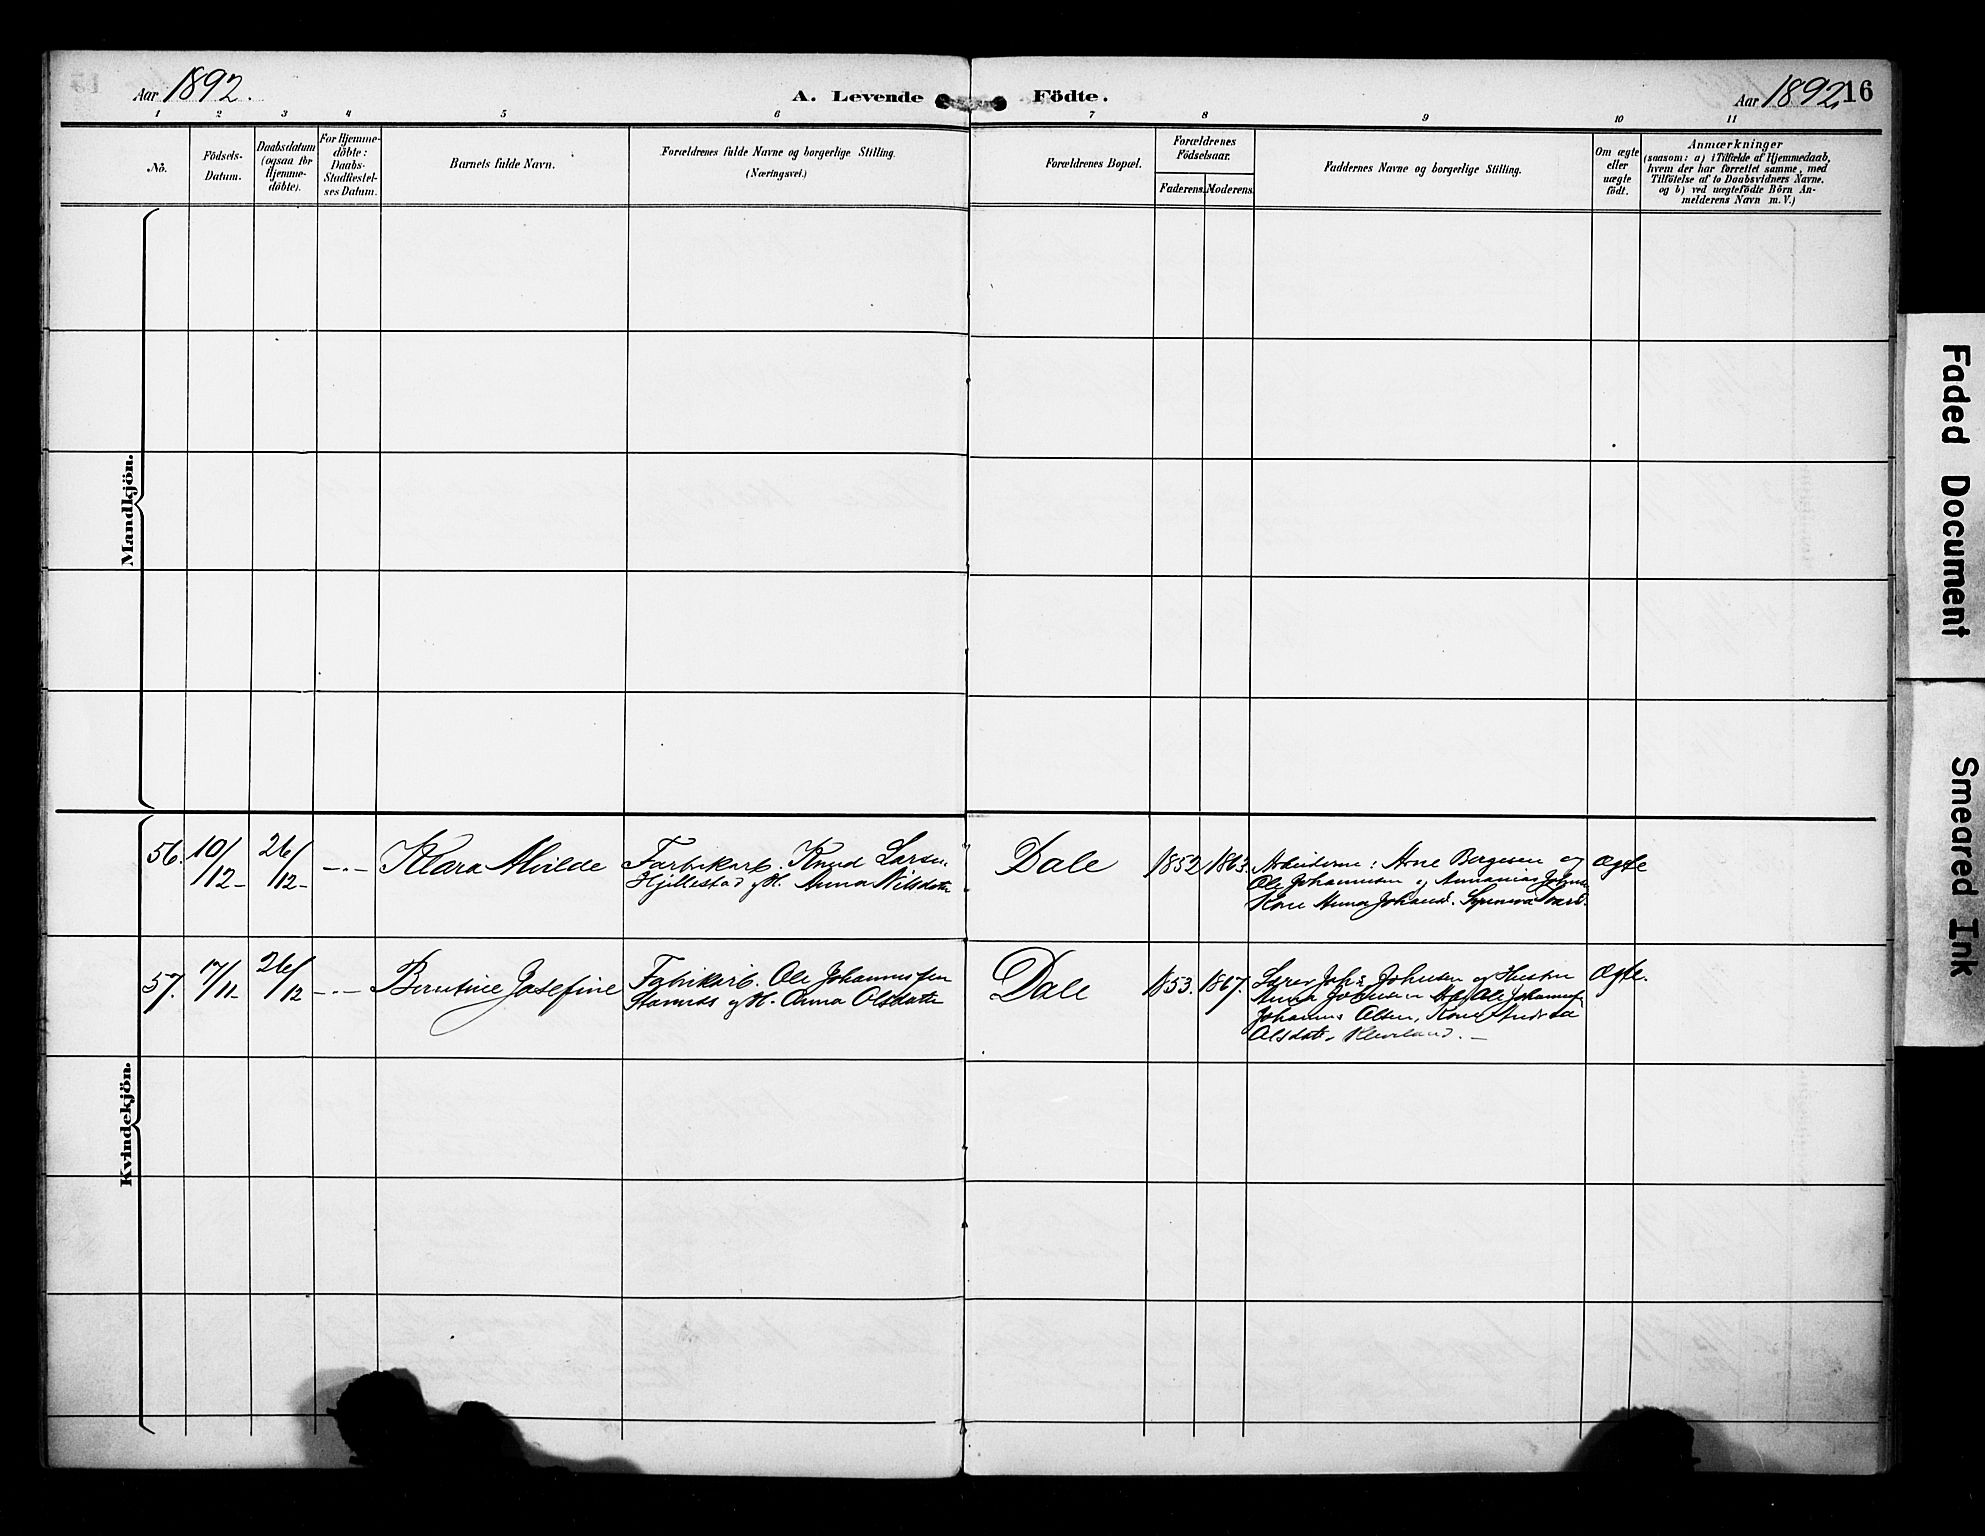 Aar 1892.
A. Levende Födte.
Aar 1892
16
1 2 3 4 5 6 7 8 9 10 11
No.
Födsels-
Datum.
Daabsdatum
(ogsaa for
Hjemme-
döbte).
For Hjemme-
döbte:
Daabs-
Stadfestel-
ses Datum.
Barnets fulde Navn.
Forældrenes fulde Navne og borgerlige Stilling.
(Næringsvei.)
Forældrenes Bopæl.
Forældrenes
Födselsaar.
Faderens.
Moderens.
Faddernes Navne og borgerlige Stilling.
Om ægte
eller
uægte
födt.
Anmærkninger
(saasom: a) i Tilfælde af Hjemmedaab,
hvem der har forrettet samme, med
Tilföielse af to Daabsvidners Navne.
og b) ved uægtefödte Börn An-
melderens Navn m. V.)
Mandkjön.
Kvindekjön.
56. 10/12 - 26/12 - - . - Klara Alvilde
Fabrikarb. Knud Larsen
Hjellestad og H. Anna Nilsdatter
Dale 1852 1863.
Arbeiderne: Arne Bergesen og
Ole Johannesen og
Kone Anna
Ægte
57. 7/11 - 26/12 - . - Berntine Josefine
Fabrikarb. Ole Johannessen
og H. Anna Olsdatter
Dale 1853. 1867.
Johnsen og Hustru
Anna Johnsen Ole
Johannes Olsen, Kone
Olsdatr. Kleveland. -
Ægte.
Faded Document
Smeared Ink